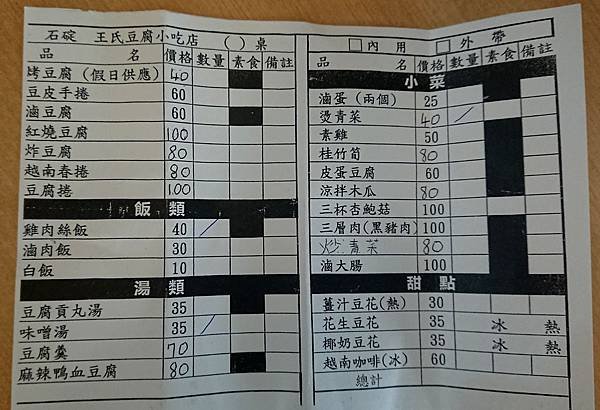 石碇 王氏豆腐小吃店 ( ) 桌
品 名 價格 數量 素食 備註
烤豆腐 (假日供應) 40
豆皮手捲 60
滷豆腐 60
紅燒豆腐 100
炸豆腐 80
越南春捲 80
豆腐捲 100
飯 類
雞肉絲飯 40 /
滷肉飯 30
白飯 10
湯 類
豆腐貢丸湯 35
味噌湯 35 /
豆腐羹 70
麻辣鴨血豆腐 80
□內用 □外帶
品 名 價格 數量 素食 備註
小 菜
滷蛋 (兩個) 25
燙青菜 40 /
素雞 50
桂竹筍 80
皮蛋豆腐 60
涼拌木瓜 80
三杯杏鮑菇 100
三層肉(黑豬肉) 100
炒青菜 80
滷大腸 100
甜 點
薑汁豆花(熱) 30
花生豆花 35 冰 熱
椰奶豆花 35 冰 熱
越南咖啡(冰) 60
總計